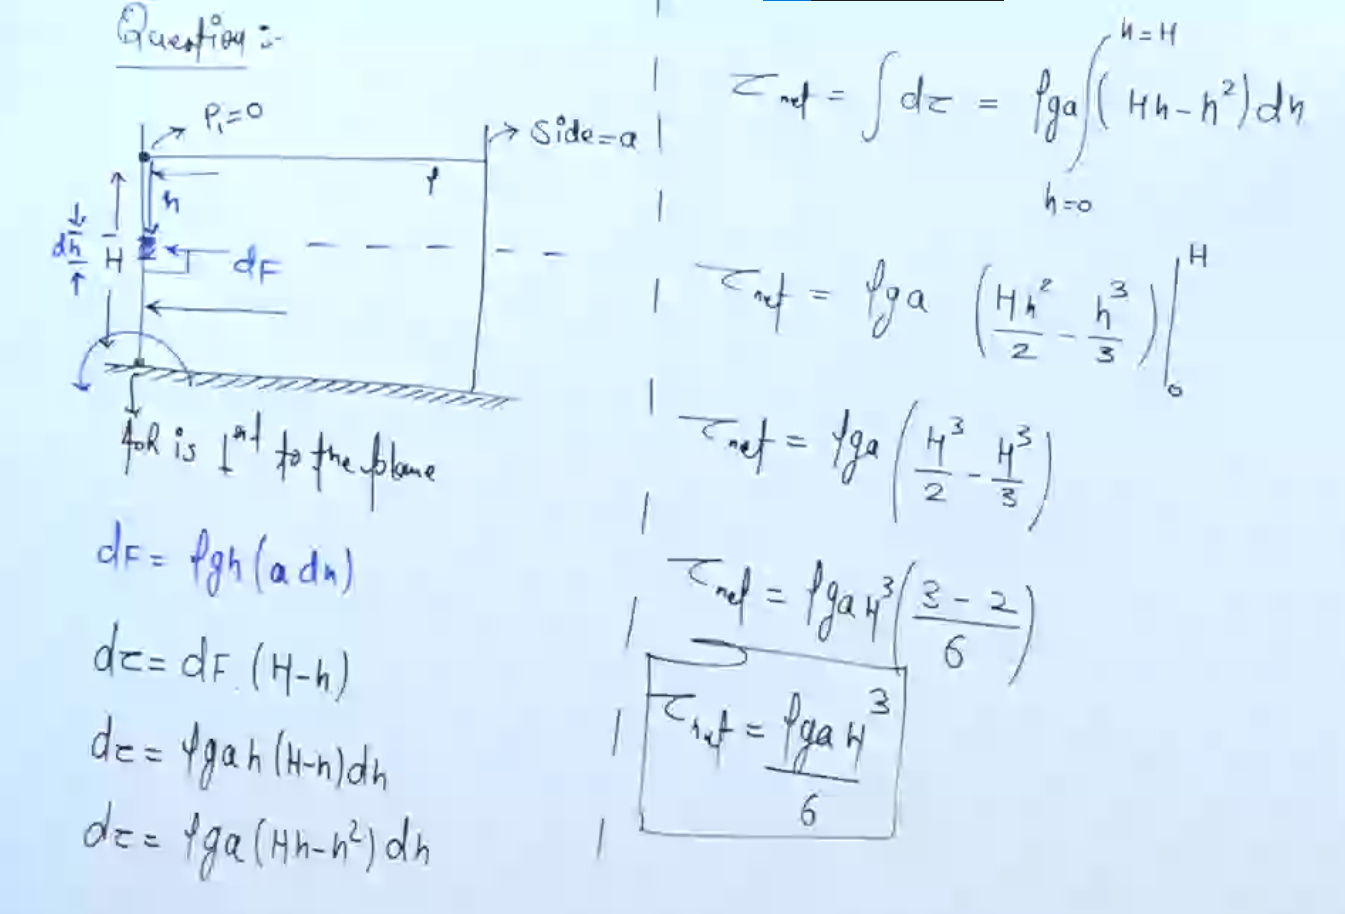 Question :-
P₁=0
Side=a
ρ
h
dh
H
dF
AOR is ⊥ar to the plane
dF = ρgh(a dh)
dτ = dF.(H-h)
dτ = ρgah(H-h)dh
dτ = ρga(Hh-h²)dh
τnet = ∫dτ = ρga∫(Hh-h²)dh
h=H
h=0
τnet = ρga (Hh²/2 - h³/3)|₀ᴴ
τnet = ρga(H³/2 - H³/3)
τnet = ρgaH³(3-2/6)
τnet = ρgaH³/6